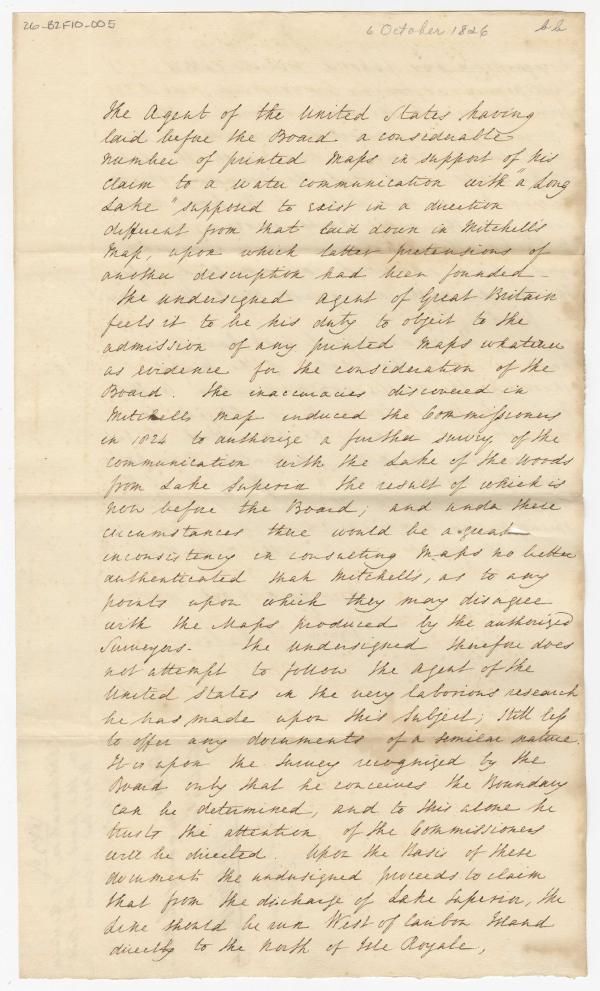 26-B2F10-005
6 October 1826
b.b
The Agent of the United States having
laid before the Board a considerable
number of printed Maps in support of his
claim to a water communication with "a Long
Lake" supposed to exist in a direction
different from that laid down in Mitchell's
Map, upon which latter pretensions of
another description had been founded -
The undersigned Agent of Great Britain
feels it to be his duty to object to the
admission of any printed Maps whatever
as evidence for the consideration of the
Board. The inaccuracies discovered in
Mitchells Map induced the Commissioners
in 1824 to authorize a further survey of the
communication with the Lake of the Woods
from Lake Superior the result of which is
now before the Board; and under these
circumstances there would be a great
inconsistency in consulting Maps no better
authenticated than Mitchell's, as to any
points upon which they may disagree
with the Maps produced by the authorized
Surveyors. The undersigned therefore does
not attempt to follow the Agent of the
United States in the very laborious research
he has made upon this Subject; Still less
to offer any documents of a similar nature.
It is upon the Survey recognized by the
Board only that he conceives the Boundary
can be determined, and to this alone he
trusts the attention of the Commissioners
will be directed. Upon the Basis of these
documents the undersigned proceeds to claim
that from the discharge of Lake Superior, the
Line should be run West of Caribou Island
directly to the North of Isle Royale,